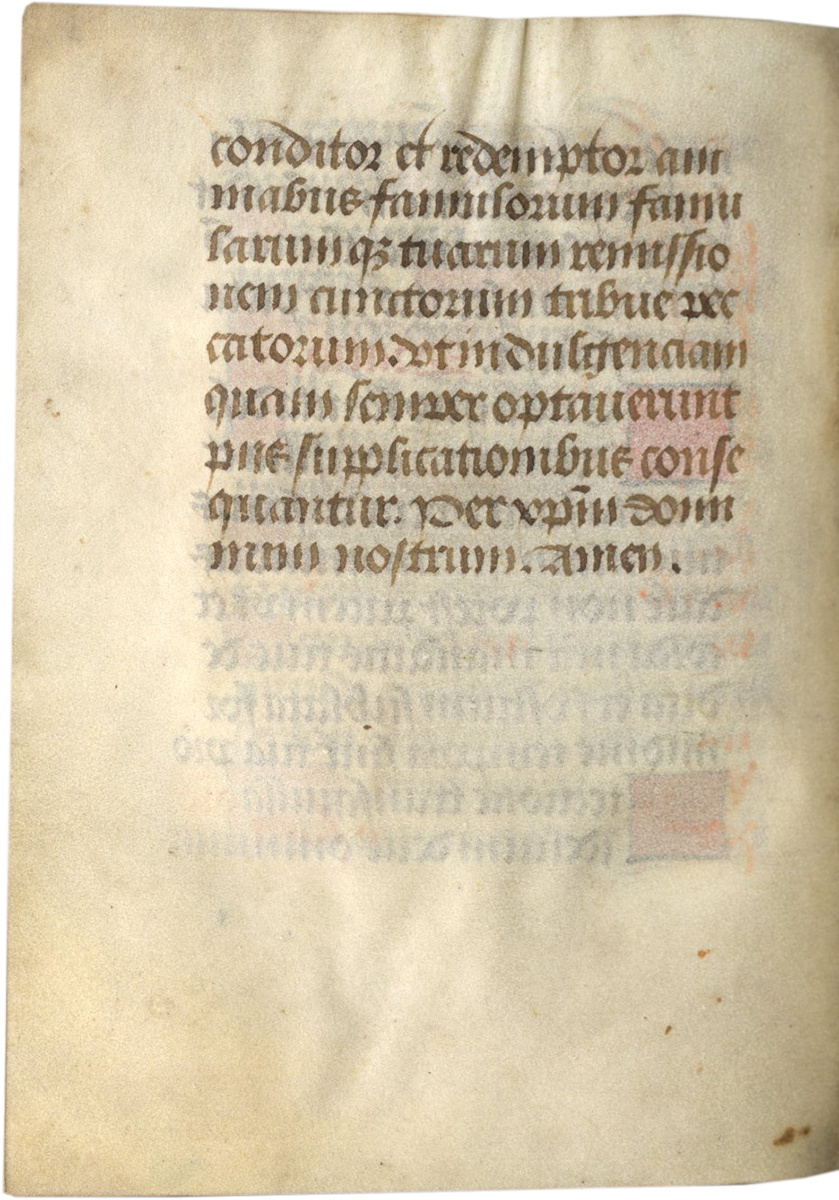 conditor et redemptor ani
mabus famulorum famu
larumqꝫ tuarum remissio
nem cunctorum tribue pec
catorum. vt indulgenciam
quam semper optauerunt
piis supplicationibus conse
quantur. Per xp̄m domi
num nostrum. Amen.